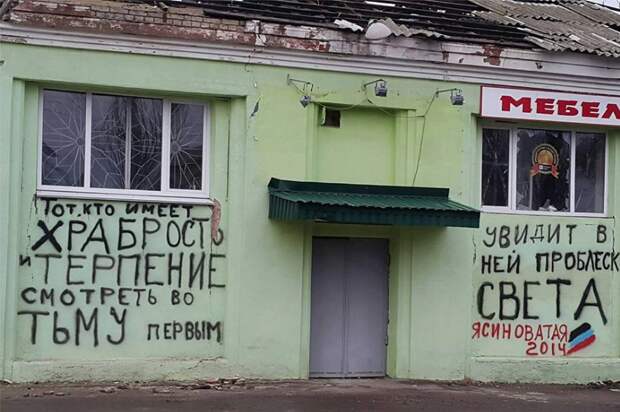 Тот, кто имеет
ХРАБРОСТЬ
и ТЕРПЕНИЕ
СМОТРЕТЬ ВО
ТЬМУ ПЕРВЫМ
МЕБЕЛ
УВИДИТ В
НЕЙ ПРОБЛЕСК
СВЕТА
ЯСИНОВАТАЯ
2014